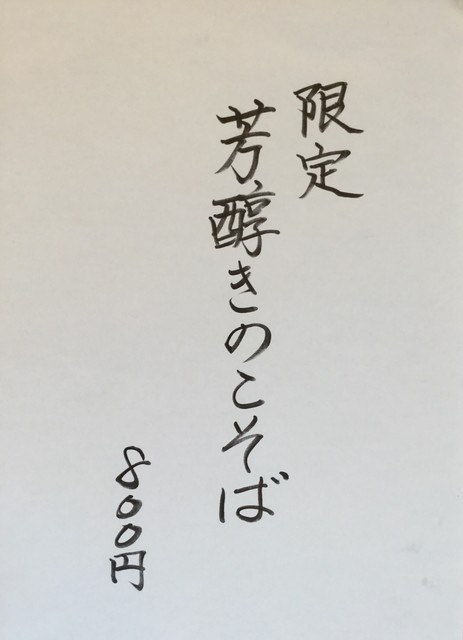 限定
芳醇きのこそば
800円